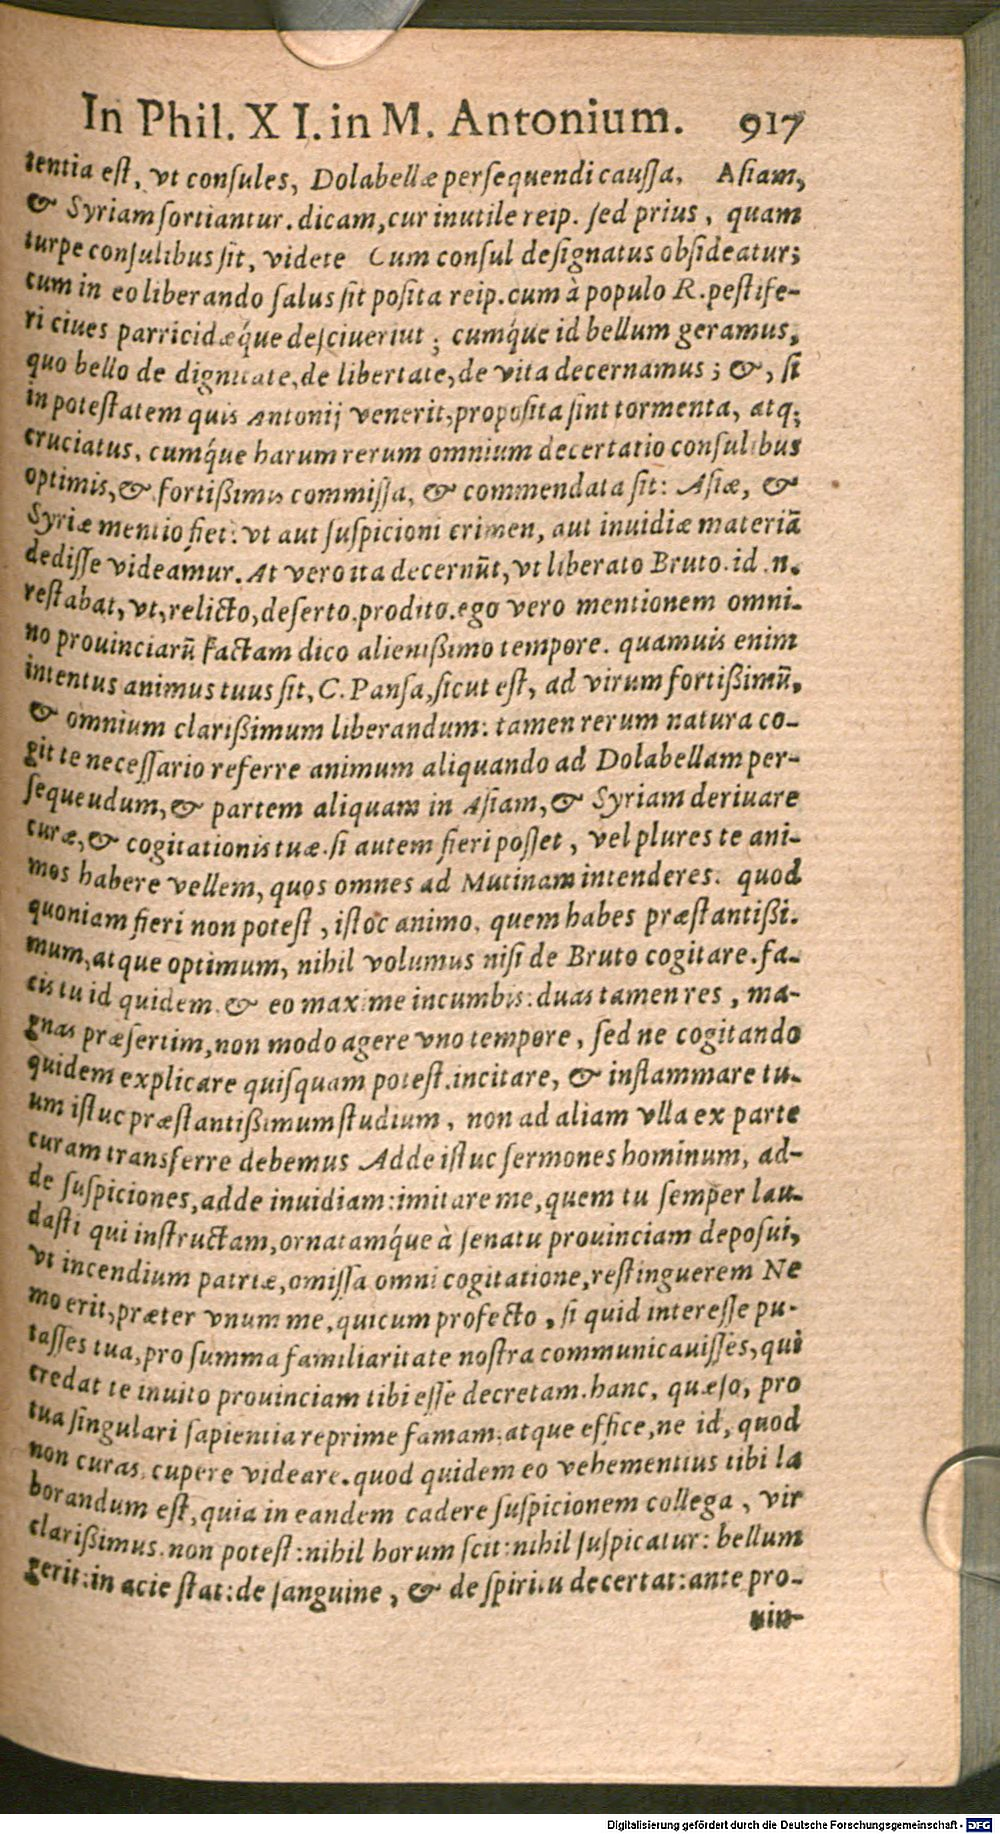 In Phil. XI. in M. Antonium. 917
tentia eſt, vt conſules, Dolabellæ perſequendi cauſſa, Aſiam,
& Syriam ſortiantur. dicam, cur inutile reip. ſed prius, quam
turpe conſulibus ſit, videte Cum conſul deſignatus obſideatur;
cum in eo liberando ſalus ſit poſita reip. cum à populo R. peſtife-
ri ciues parricidæq́ue deſciuerint; cumq́ue id bellum geramus,
quo bello de dignitate, de libertate, de vita decernamus; &, ſi
in poteſtatem quis Antonij venerit, propoſita ſint tormenta, atq;
cruciatus, cumq́ue harum rerum omnium decertatio conſulibus
optimis, & fortißimis commiſſa, & commendata ſit: Aſiæ, &
Syriæ mentio fiet: vt aut ſuſpicioni crimen, aut inuidiæ materiā
dediſſe videamur. At vero ita decernūt, vt liberato Bruto. id .n.
reſtabat, vt, relicto, deſerto. prodito. ego vero mentionem omni-
no prouinciarū factam dico alienißimo tempore. quamuis enim
intentus animus tuus ſit, C. Panſa, ſicut eſt, ad virum fortißimū,
& omnium clarißimum liberandum: tamen rerum natura co-
git te neceſſario referre animum aliquando ad Dolabellam per-
ſequeudum, & partem aliquam in Aſiam, & Syriam deriuare
curæ, & cogitationis tuæ. ſi autem fieri poſſet, vel plures te ani-
mos habere vellem, quos omnes ad Mutinam intenderes. quod
quoniam fieri non poteſt, iſtoc animo, quem habes præſtantißi-
mum, atque optimum, nihil volumus niſi de Bruto cogitare. fa-
cis tu id quidem. & eo maxime incumbis: duas tamen res, ma-
gnas præſertim, non modo agere vno tempore, ſed ne cogitando
quidem explicare quiſquam poteſt. incitare, & inflammare tu-
um iſtuc præſtantißimum ſtudium, non ad aliam vlla ex parte
curam transferre debemus Adde iſtuc ſermones hominum, ad-
de ſuſpiciones, adde inuidiam: imitare me, quem tu ſemper lau-
daſti qui inſtructam, ornatamq́ue à ſenatu prouinciam depoſui,
vt incendium patriæ, omiſſa omni cogitatione, reſtinguerem Ne
mo erit, præter vnum me, quicum profecto, ſi quid intereſſe pu-
taſſes tua, pro ſumma familiaritate noſtra communicauiſſes, qui
credat te inuito prouinciam tibi eſſe decretam. hanc, quæſo, pro
tua ſingulari ſapientia reprime famam. atque effice, ne id, quod
non curas, cupere videare. quod quidem eo vehementius tibi la
borandum eſt, quia in eandem cadere ſuſpicionem collega, vir
clarißimus. non poteſt: nihil horum ſcit: nihil ſuſpicatur: bellum
gerit: in acie ſtat: de ſanguine, & de ſpiritu decertat: ante pro-
uin-
Digitalisierung gefördert durch die Deutsche Forschungsgemeinschaft - DFG